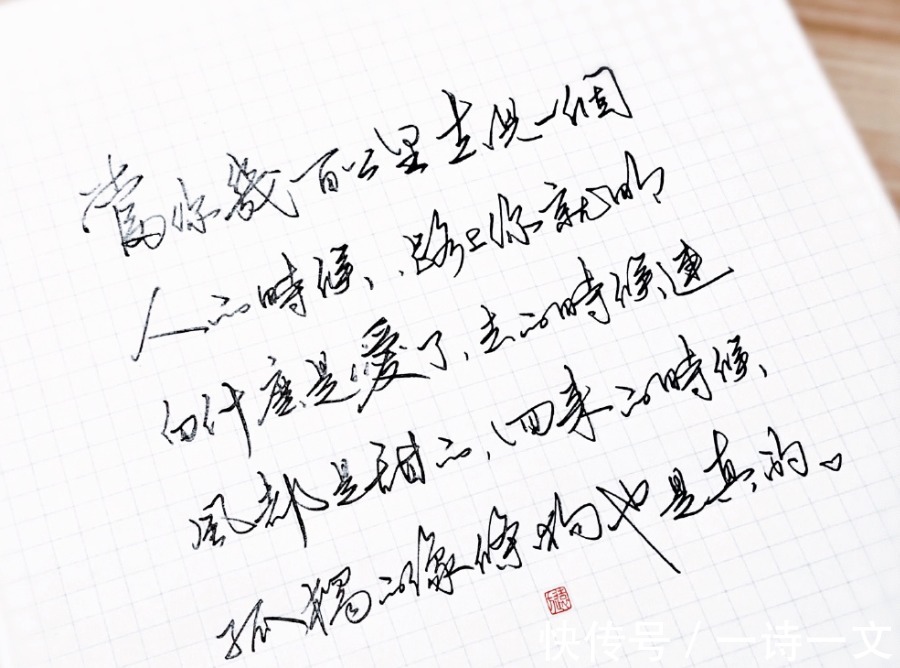 當你幾百公里去見一個
人的時候、路上你就明
白什麼是愛了、去的時候、連
風都是甜的、回来的時候、
孤獨的像條狗也是真的。
快传号 / 一诗一文